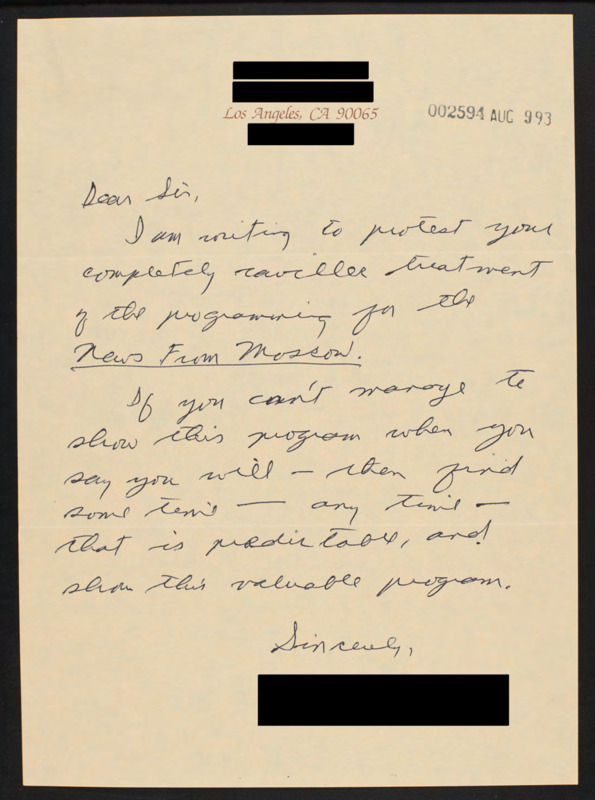 Los Angeles, CA 90065
002594 AUG 993
Dear Sir,
I am writing to protest your
completely treatment
of the programming for the
News From Moscow.
If you can't manage to
show this program when you
say you will – then find
some time — any time –
that is predictable, and
show this valuable program.
Sincerely,